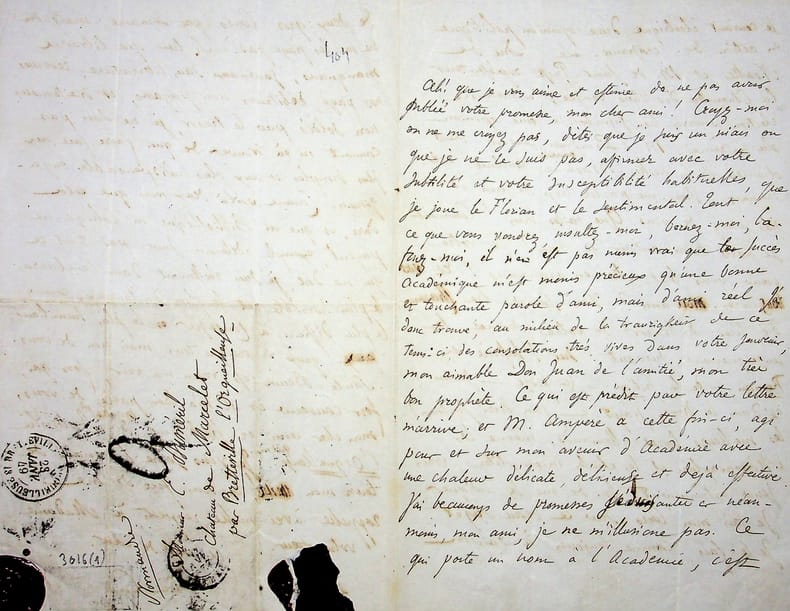 404
Ah! que je vous aime et estime de ne pas avoir
oublié votre promesse, mon cher ami! Croyez-moi
ou ne me croyez pas, dites que je suis un niais ou
que je ne le suis pas, affirmez avec votre
subtilité et votre susceptibilité habituelles, que
je joue le Florian et le sentimental. Tout
ce que vous voudrez, insultez-moi, bernez-moi,
moi, il n'en est pas moins vrai que succès
Académique m'est moins précieux qu'une bonne
et touchante parole d'ami, mais d'ami réel. J'ai
donc trouvé, au milieu de la de ce
tems-ci des consolations très vives dans votre souvenir,
mon aimable Don Juan de l'amitié, mon très
bon prophète. Ce qui est prédit par votre lettre
m'arrive; et M. Ampère a cette fois-ci, agi
pour et sur mon avenir d'Académie avec
une chaleur délicate, délicieuse et déjà effective.
J'ai beaucoup de promesses et néan-
moins, mon ami, je ne m'illusionne pas. Ce
qui porte un nom à l'Académie, c'est
Monsieur
Chateau de Marcelet
par Bretteville l'Orgueilleuse
Normandie
3016(1)